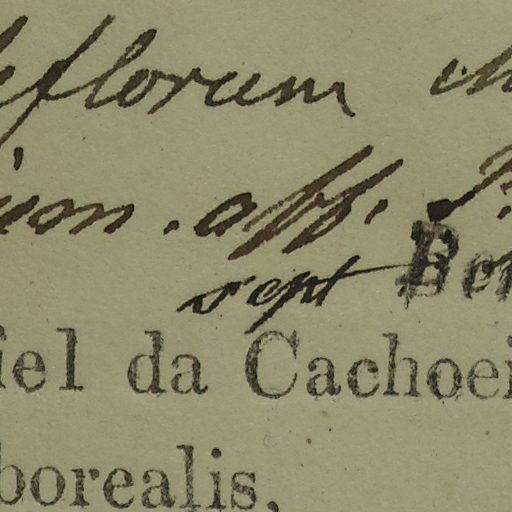 florum
aff.
sept Ber
iel da Cachoei
borealis,